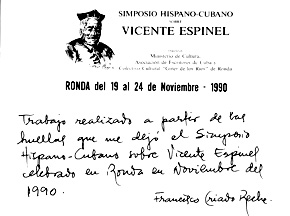 SIMPOSIO HISPANO-CUBANO
SOBRE
VICENTE ESPINEL
Ministerio de Cultura,
Asociación de Escritores de Cuba y
Colectivo Cultural "Giner de los Ríos" de Ronda
RONDA del 19 al 24 de Noviembre - 1990
Trabajo realizado a partir de las
huellas que me dejó el Simposio
Hispano-Cubano sobre Vicente Espinel
celebrado en Ronda en Noviembre del
1990.
Francisco Criado